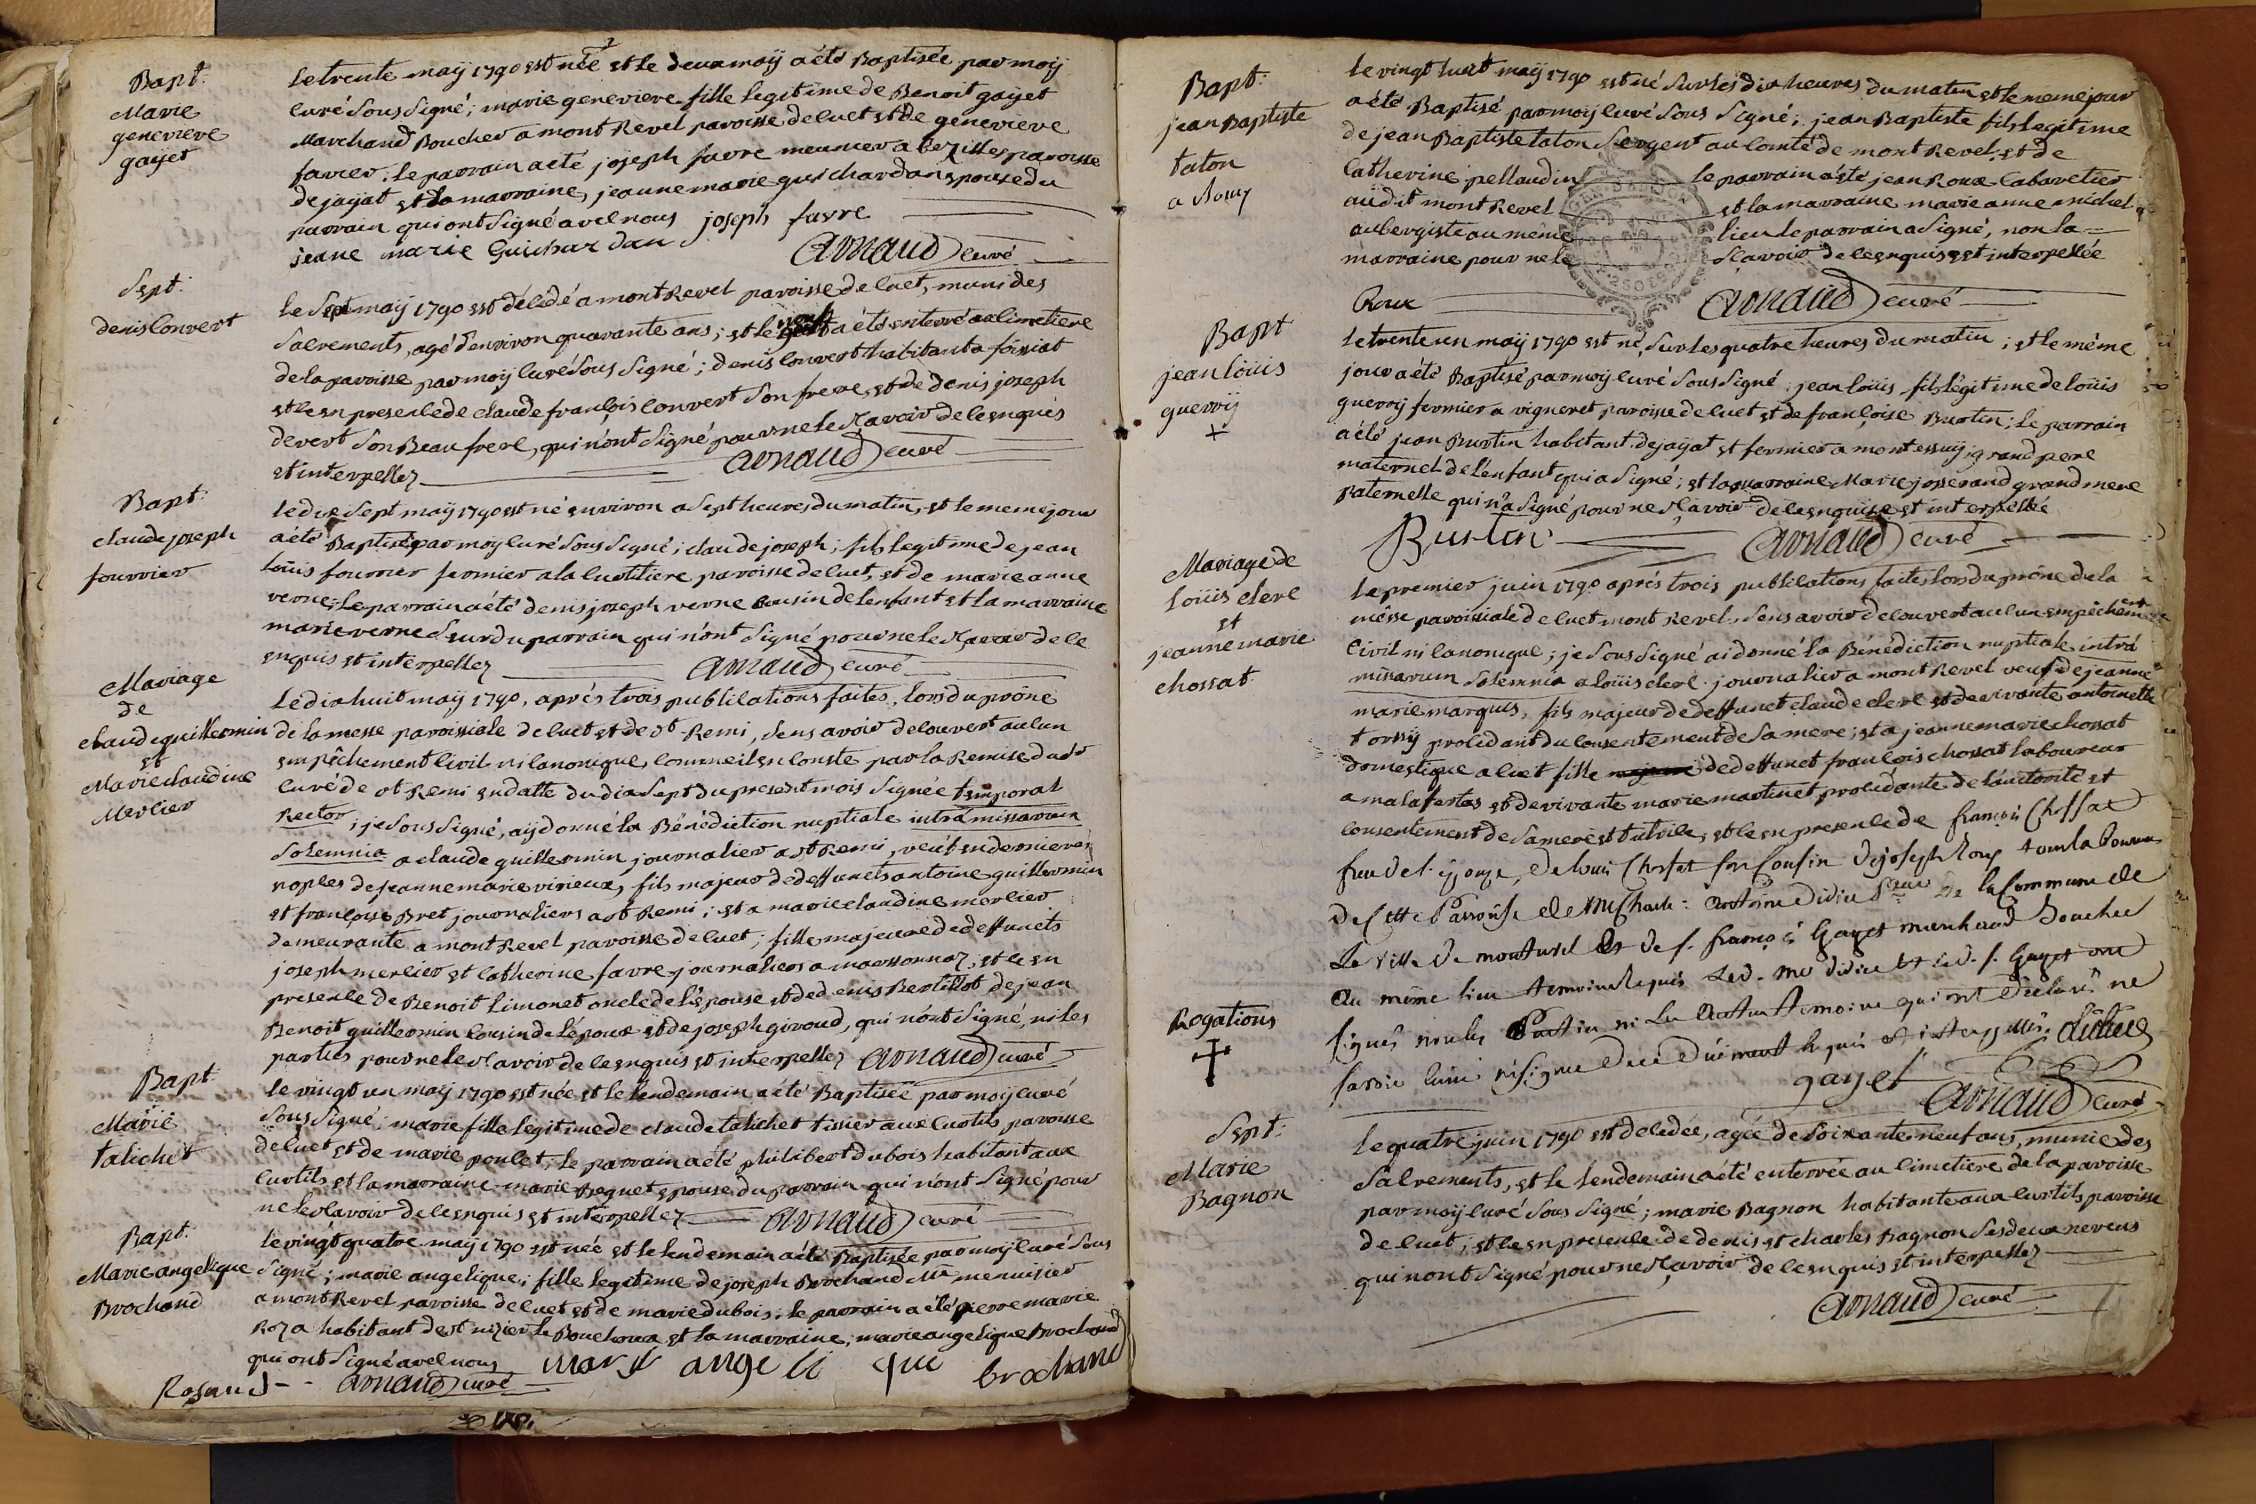 Bapt:
Marie
genevieve
gayet
le trente maÿ 1790 est née et le deux maÿ a été Baptisée par moÿ
curé Sous Signé; marie genevieve fille legitime de Benoit gaÿet
Marchand Boucher a mont Revel paroisse de cuet et de genevieve
favier. le parrain a eté joseph favre meunier a bezilles paroisse
de jaÿat et la marraine, jeanne marie guichardan epouse du
parrain qui ont Signé avec nous joseph favre
jeane marie Guichar dan Arnaud curé
Sept:
denis Convert
le Sept maÿ 1790 est décédé a mont Revel paroisse de cuet, muni des
Sacrements, agé d'environ quarante ans; et le a été enterré au cimetiere
de la paroisse par moÿ curé Sous Signé; denis Convert habitant a foissiat
et ce en presence de claude françois Convert Son frere, et de denis joseph
devert Son Beau frere, qui n'ont Signé pour ne le Sçavoir de ce enquis
et interpellez Arnaud curé
Bapt:
claude joseph
fourrier
le dix Sept maÿ 1790 est né environ a Sept heures du matin, et le meme jour
a été Baptisé par moÿ curé Sous Signé; claude joseph; fils legitime de jean
loüis fourrier fermier a la cuetiliere paroisse de cuet, et de marie anne
verne; le parrain a été denis joseph verne cousin de l'enfant et la marraine
marie verne Seur du parrain qui n'ont Signé pour ne le Sçavoir de ce
enquis et interpellez Arnaud curé
Mariage
de
claude guillermin
et
Marie claudine
Merlier
Le dix huit maÿ 1790, aprés trois publications faites, lors du prône
de la messe paroissiale de cuet et de St Remi, Sens avoir decouvert aucun
empêchement Civil ni canonique, comme il en conste par la Remise du Sr
curé de St Remi en datte du dix Sept du present mois Signée temporal
Rector; je Sous Signé, aÿ donné la Bénédiction nuptiale intra missarum
Solemnia a claude guillermin journalier a St Remi, veuf en derniere
noples de jeanne marie virieux, fils majeur de deffuncts antoine guillermin
et françoise Bret journaliers a St Remi; et a marie claudine merlier
demeurante a mont Revel paroisse de cuet; fille majeure de deffuncts
joseph merlier et catherine favre journaliers a marssonnaz, et ce en
presence de Benoit limonet oncle de l'épouse et de denis Bertillot de jean
Benoit guillermin cousin de l'époux et de joseph giroud, qui n'ont Signé, ni les
parties pour ne le Sçavoir de ce enquis et interpellez Arnaud curé
Bapt:
Marie
talichet
le vingt un maÿ 1790 est née et le lendemain a été Baptisée par moÿ curé
Sous Signé; marie fille legitime de claude talichet tissier aux Curtils paroisse
de cuet et de marie poulet, le parrain a été philibert dubois habitant aux
Curtils et la marraine marie Beguet epouse du parrain qui n'ont Signé pour
ne le Sçavoir de ce enquis et interpellez Arnaud curé
Bapt:
Marie angelique
Brochand
le vingt quatre maÿ 1790 est née et le lendemain a été Baptisée par moÿ curé Sous
Signé; marie angelique; fille legitime de joseph Brochand Mtre menuisier
a mont Revel paroisse de cuet et de marie dubois; le parrain a été pierre marie
Roza habitant de St nizier le Bouchoux et la marraine, marie angelique Brochand
qui ont Signé avec nous marie ange li que brochand
Arnaud curé
Bapt:
jean Baptiste
taton
le vingt huit maÿ 1790 est né Sur les dix heures du matin et le meme jour
a été Baptisé par moÿ curé Sous Signé; jean Baptiste fils legitime
de jean Baptiste taton Sergent au Comté de mont Revel, et de
Catherine pellaudin le parrain a été jean Roux Cabaretier
audit mont Revel et la marraine marie anne michel
aubergiste au même lieu le parrain a Signé, non la
marraine pour ne le Sçavoir de ce enquise et interpellée
Roux Arnaud curé
Bapt
jean loüis
guerrÿ
+
le trente un maÿ 1790 est né, Sur les quatre heures du matin; et le même
jour a été Baptisé par moÿ curé Sous Signé jean loüis fils légitime de loüis
guerrÿ fermier a vigneret paroisse de cuet et de françoise Burtin; le parrain
a été jean Burtin habitant de jaÿat et fermier a montessuÿ grand pere
maternel de l'enfant qui a Signé; et la marraine Marie josserand grand mere
paternelle qui n'a Signé pour ne Sçavoir de ce enquise et interpellée
Burtin Arnaud curé
Mariage de
Loüis clerc
et
jeanne marie
chossat
le premier juin 1790 aprés trois publications faites lors du prône de la
messe paroissiale de cuet mont Revel, Sens avoir decouvert aucun empêchement
Civil ni canonique; je Sous Signé ai donné la Bénédiction nuptiale intra
missarum Solemnia a loüis clerc journalier a mont Revel veuf de jeanne
marie marquis, fils majeur de deffunct claude clerc et de vivante antoinette
torssÿ procedant du consentement de Sa mere; et a jeanne marie chossat
domestique a cuet fille de deffunct françois chossat laboureur
a malafertas et de vivante marie martinet procedante de l'autorité et
consentement de Sa mere et tutrice, et ce en presence de françois Chossat
frere de l'épouze, de louis Chossat son Cousin de joseph Roux tous laboureurs
de Cette Parroisse de Me Charle antoine Didier de la Commune de
La Ville de montrevel et de s. françois Gayet marchand Boucher
au même lieu temoins requis Led. me didier et Led. s. Gayet ont
signés non les Parties ni les autres temoins qui ont déclarés ne
gayet Arnaud curé
Rogations
+
Sept:
Marie
Bagnon
le quatre juin 1790 est decedée, agée de Soixante neuf ans, munie des
Sacrements, et le lendemain a été enterrée au cimetiere de la paroisse
par moÿ curé Sous Signé; marie Bagnon habitante aux Curtils paroisse
de cuet, et ce en presence de denis et charles Bagnon Ses deux neveus
qui n'ont Signé pour ne Sçavoir de ce enquis et interpellez
Arnaud curé